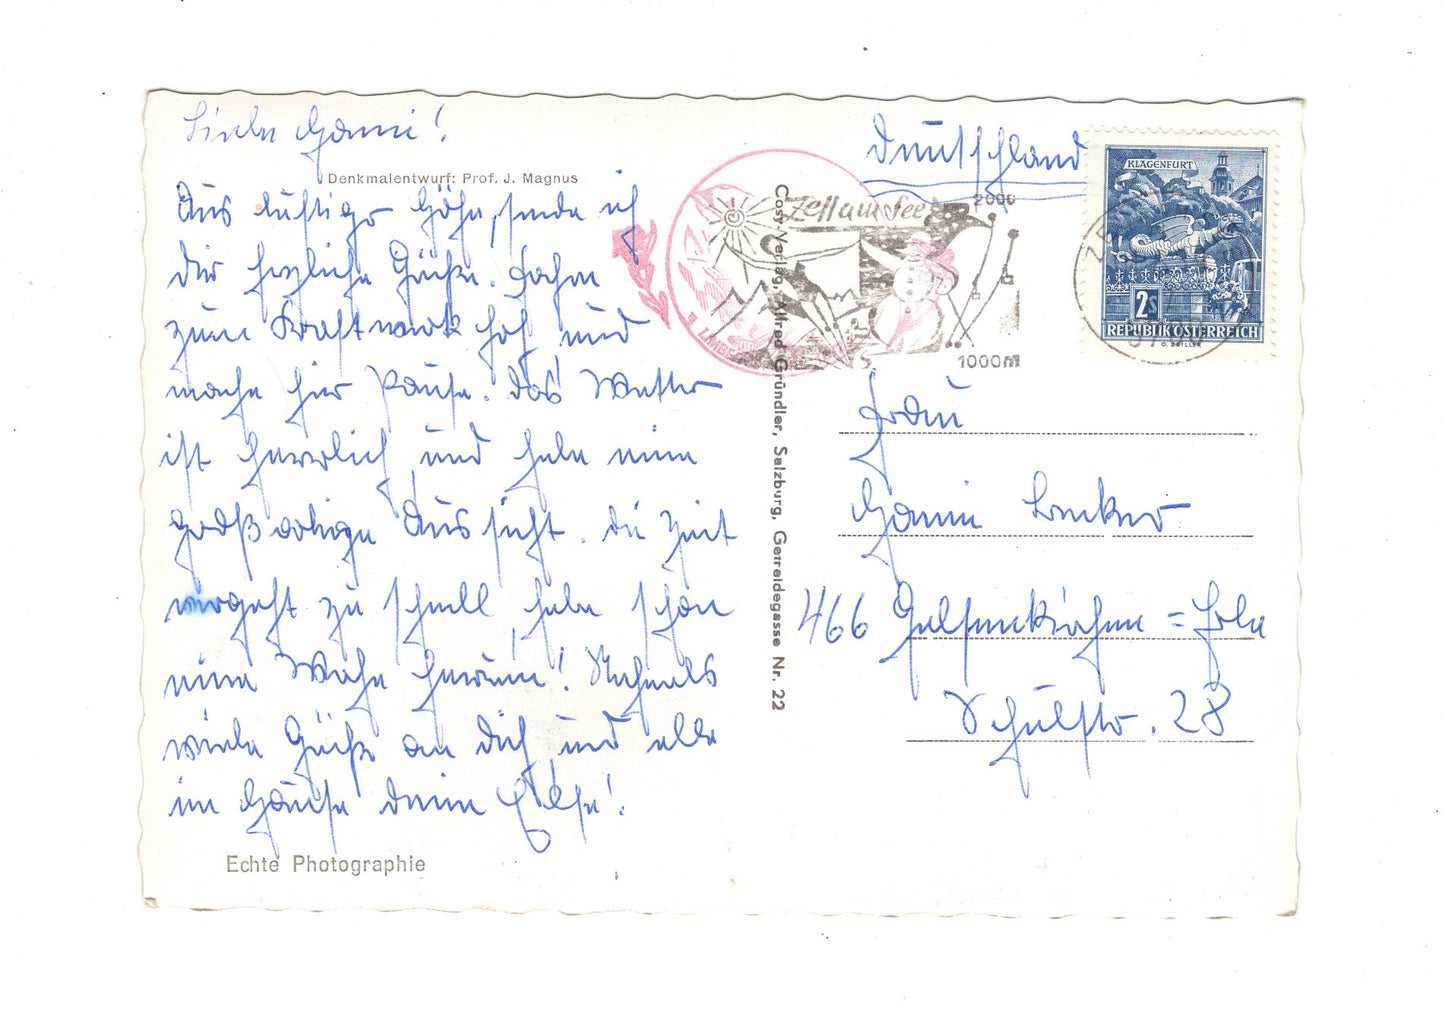 Liebe Hanni!
Denkmalentwurf: Prof. J. Magnus
Aus luftiger Höhe, sende ich
Dir herzliche Grüße. Fahre
zum Kraftwerk hoch und
mache hier Pause. Das Wetter
ist herrlich, und habe eine
großartige Aussicht. Die Zeit
vergeht zu schnell, habe schon
eine Woche herum! Nochmals
viele Grüße an Dich, und alle
im Hause deine Else!
Echte Photographie
Cosy-Verlag, Alfred Gründler, Salzburg, Getreidegasse Nr. 22
Deutschland
Zell am See
2000
1000m
KLAGENFURT
2S
REPUBLIK ÖSTERREICH
5700
Frau
Hanni
466 Gelsenkirchen = Erle
Schulstr. 28